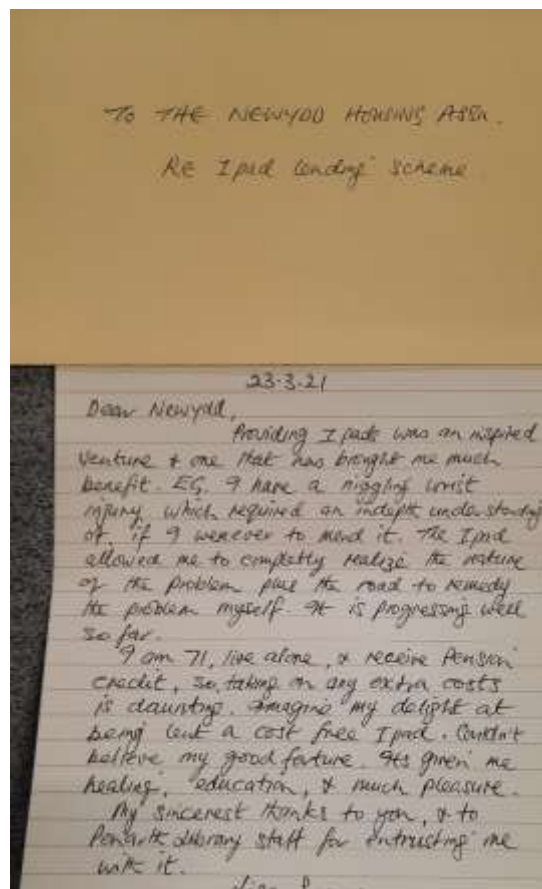 To THE NEWYDD HOUSING ASSn.
Re I pad lending scheme
23.3.21
Dear Newydd,
Providing I pads was an inspired
venture & one that has brought me much
benefit. EG. I have a niggling wrist
injury, which required an indepth understanding
of, if I were ever to mend it. The I pad
allowed me to completly realize the nature
of the problem plus the road to remedy
the problem myself. It is progressing well
so far.
I am 71, live alone, & receive Pension
credit, so, taking on any extra costs
is daunting. Imagine my delight at
being lent a cost free I pad. Couldn't
believe my good fortune. Its given me
healing, education, & much pleasure.
My sincerest thanks to you, & to
Penarth Library staff for entrusting me
with it.